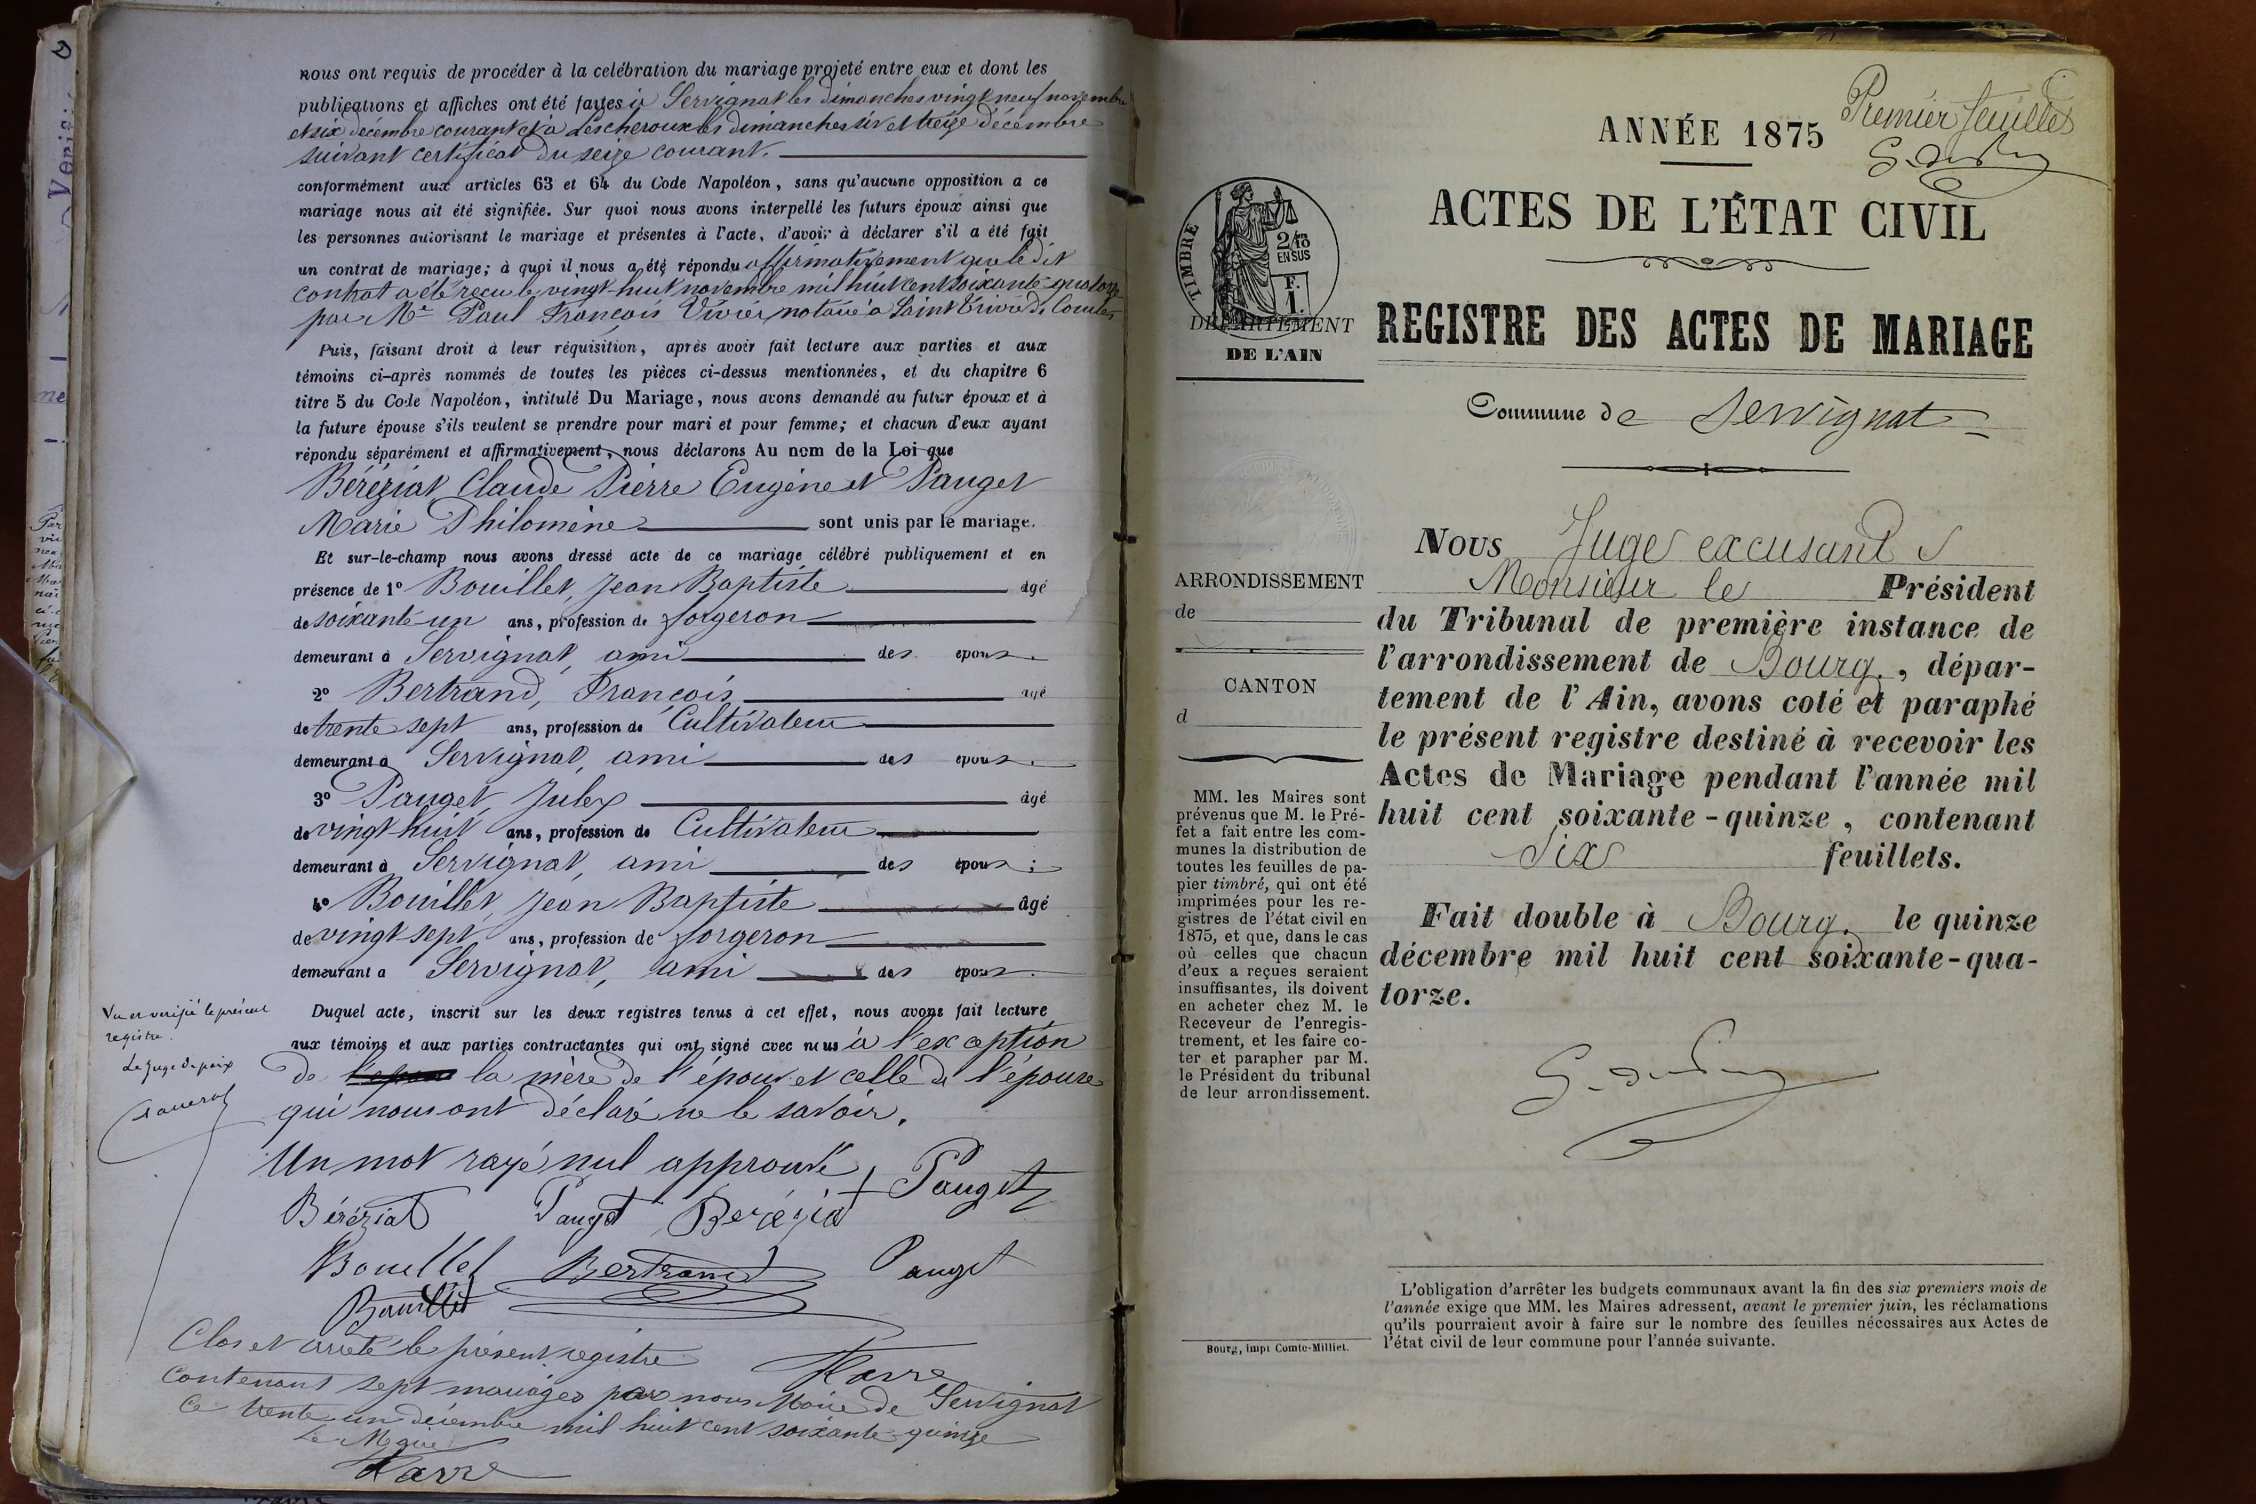 nous ont requis de procéder à la celébration du mariage projeté entre eux et dont les
publications et affiches ont été faites à Servignat les dimanches vingt neuf novembre
et six décembre courant et à Lescheroux les dimanches six et treize décembre
suivant certificat du seize courant.
conformément aux articles 63 et 64 du Code Napoléon, sans qu'aucune opposition a ce
mariage nous ait été signifiée. Sur quoi nous avons interpellé les futurs époux ainsi que
les personnes autorisant le mariage et présentes à l'acte, d'avoir à déclarer s'il a été fait
un contrat de mariage; à quoi il nous a été répondu affirmativement que le dit
contrat a été reçu le vingt-huit novembre mil huit cent soixante-quatorze
par Me Paul François Vivier, notaire à Saint Trivier de Courtes
Puis, faisant droit à leur réquisition, après avoir fait lecture aux parties et aux
témoins ci-après nommés de toutes les pièces ci-dessus mentionnées, et du chapitre 6
titre 5 du Code Napoléon, intitulé Du Mariage, nous avons demandé au futur époux et à
la future épouse s'ils veulent se prendre pour mari et pour femme; et chacun d'eux ayant
répondu séparément et affirmativement, nous déclarons Au nom de la Loi que
Béréziat Claude Pierre Eugène et Pauget
Marie Philomène sont unis par le mariage.
Et sur-le-champ nous avons dressé acte de ce mariage célébré publiquement et en
présence de 1° Bouillet, Jean Baptiste âgé
de soixante-un ans, profession de forgeron
demeurant à Servignat, ami des époux.
2° Bertrand, François âgé
de trente sept ans, profession de Cultivateur
demeurant à Servignat, ami des époux.
3° Pauget Jules âgé
de vingt huit ans, profession de Cultivateur
demeurant à Servignat, ami des époux;
4° Bouillet, Jean Baptiste âgé
de vingt-sept ans, profession de forgeron
demeurant a Servignat, ami des époux.
Duquel acte, inscrit sur les deux registres tenus à cet effet, nous avons fait lecture
aux témoins et aux parties contractantes qui ont signé avec nous à l'exception
de la mère de l'époux et celle de l'épouse
qui nous ont déclaré ne le savoir.
Un mot rayé nul approuvé
Vu et vérifié le présent
registre.
Le Juge de paix
Béréziat Pauget Béréziat Pauget
Bouillet Bertrand Pauget
Bouillet
Clos et arrêté le présent registre
Contenant sept mariages par nous Maire de Servignat
Ce trente un décembre mil huit cent soixante-quinze
Le Maire
Ravre
Premier feuillet
ANNÉE 1875
ACTES DE L'ÉTAT CIVIL
TIMBRE
2/10
EN SUS
F.
1.
DÉPARTEMENT
DE L'AIN
REGISTRE DES ACTES DE MARIAGE
Commune de Servignat
Nous Juge excusant
Monsieur le Président
du Tribunal de première instance de
l'arrondissement de Bourg, dépar-
tement de l'Ain, avons coté et paraphé
le présent registre destiné à recevoir les
Actes de Mariage pendant l'année mil
huit cent soixante-quinze, contenant
Six feuillets.
Fait double à Bourg, le quinze
décembre mil huit cent soixante-qua-
torze.
ARRONDISSEMENT
de
CANTON
d
MM. les Maires sont
prévenus que M. le Pré-
fet a fait entre les com-
munes la distribution de
toutes les feuilles de pa-
pier timbré, qui ont été
imprimées pour les re-
gistres de l'état civil en
1875, et que, dans le cas
où celles que chacun
d'eux a reçues seraient
insuffisantes, ils doivent
en acheter chez M. le
Receveur de l'enregis-
trement, et les faire co-
ter et parapher par M.
le Président du tribunal
de leur arrondissement.
L'obligation d'arrêter les budgets communaux avant la fin des six premiers mois de
l'année exige que MM. les Maires adressent, avant le premier juin, les réclamations
qu'ils pourraient avoir à faire sur le nombre des feuilles nécessaires aux Actes de
l'état civil de leur commune pour l'année suivante.
Bourg, impr Comte-Milliet.